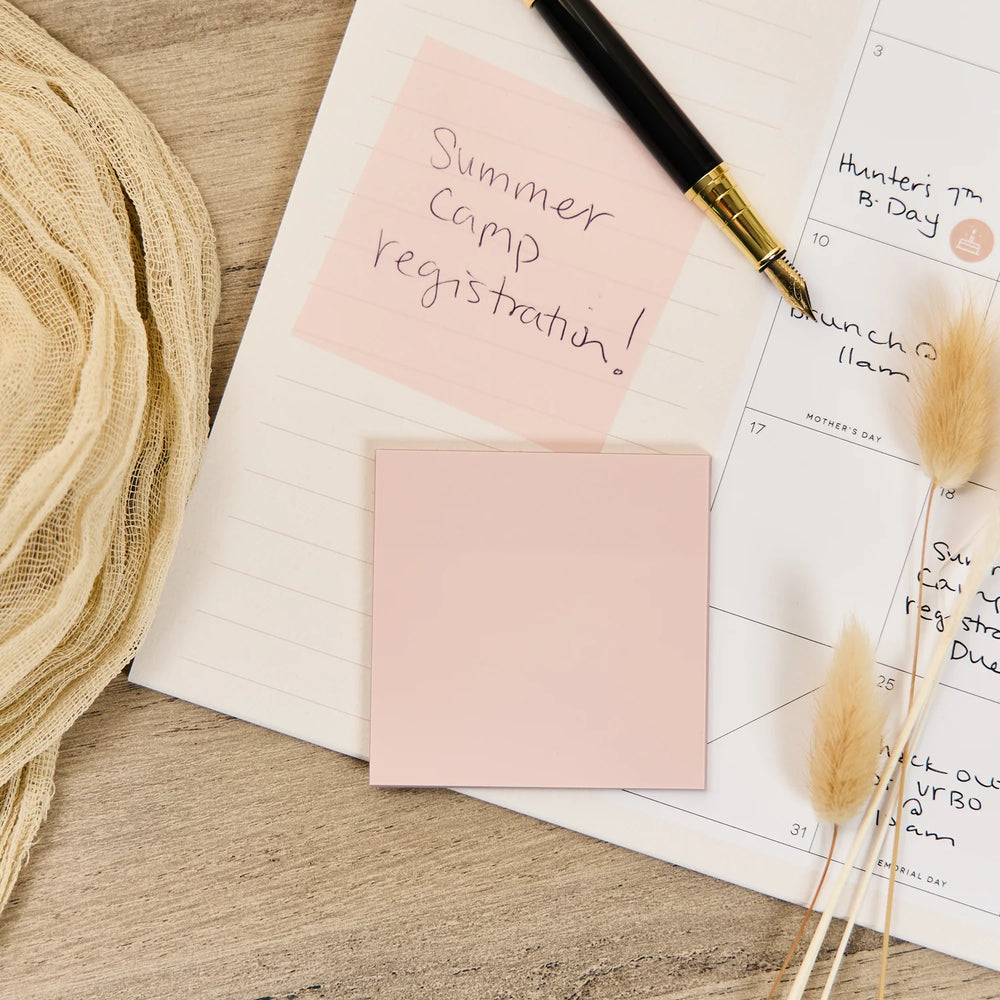 Summer
Camp
registration!
3
Hunter's 7th
B-Day
10
brunch @
11am
MOTHER'S DAY
17
18
Due
25
out
VrBO
@
am
31
DAY